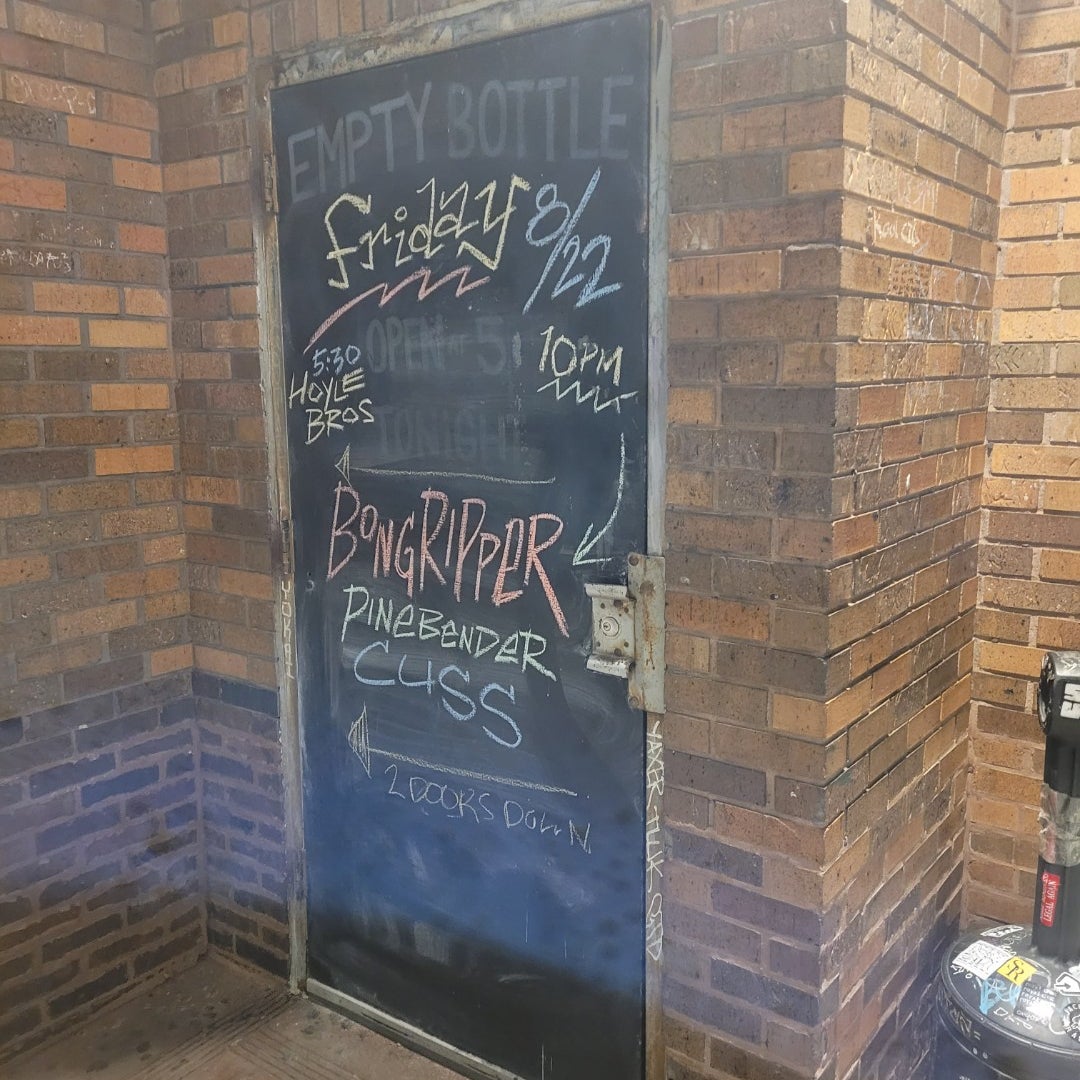 EMPTY BOTTLE
Friday 8/22
OPEN AT 5:
5:30
HOYLE
BROS
10PM
TONIGHT
BONGRIPPER
PINEBENDER
CUSS
2 DOORS DOWN